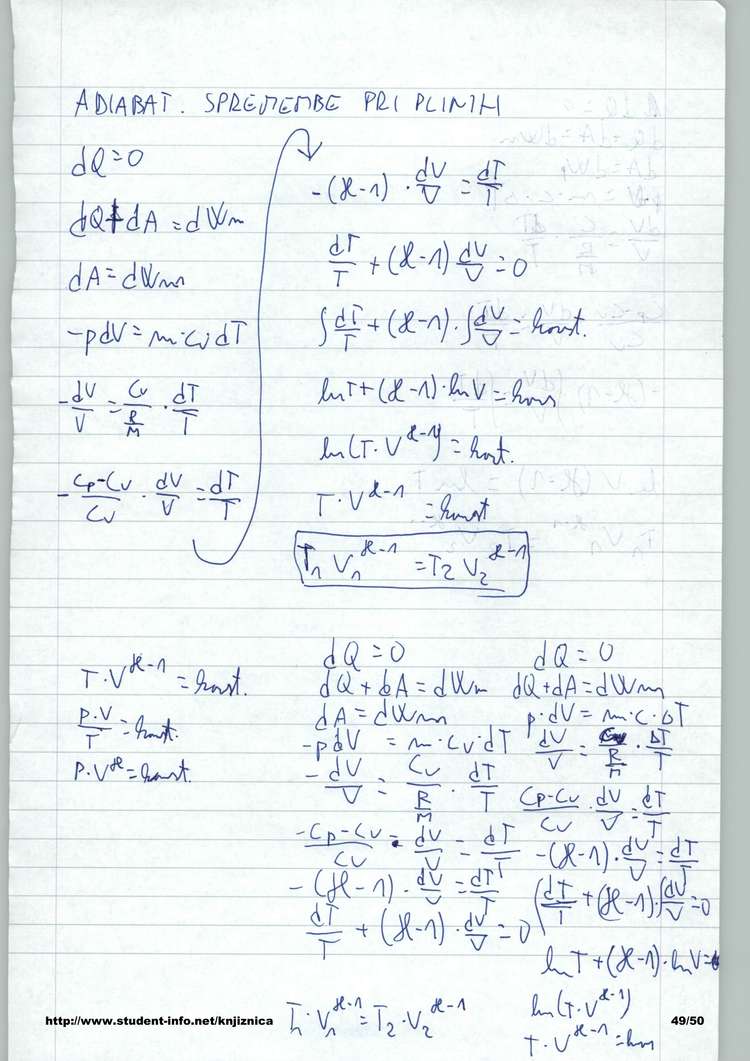 ADIABAT. SPREMEMBE PRI PLINIH
dQ=0
dQ+dA=dWm
dA=dWm
-pdV=m·cv·dT
-dV/V = cv/(R/M) · dT/T
-(cp-cv)/cv · dV/V = dT/T
-(ϰ-1) · dV/V = dT/T
dT/T + (ϰ-1) dV/V = 0
∫dT/T + (ϰ-1)·∫dV/V = konst.
lnT+(ϰ-1)·lnV=kons
ln(T·V^(ϰ-1))=kost.
T·V^(ϰ-1) =konst
T1 V1^(ϰ-1) =T2 V2^(ϰ-1)
T·V^(ϰ-1) =konst.
p·V/T =konst.
p·V^ϰ=konst.
dQ=0
dQ+dA=dWm
dA=dWm
-pdV =m·cv·dT
-dV/V = cv/(R/M) · dT/T
-cp-cv/cv · dV/V = dT/T
-(ϰ-1)·dV/V=dT/T
dT/T +(ϰ-1)·dV/V=0
T1·V1^(ϰ-1)=T2·V2^(ϰ-1)
dQ=0
dQ+dA=dWm
p·dV=m·c·ΔT
dV/V = cv/(R/M) · ΔT/T
cp-cv/cv · dV/V = dT/T
-(ϰ-1)·dV/V=dT/T
∫dT/T+(ϰ-1)·∫dV/V=0
lnT+(ϰ-1)·lnV=
ln(T·V^(ϰ-1))
T·V^(ϰ-1)=kon
http://www.student-info.net/knjiznica
49/50